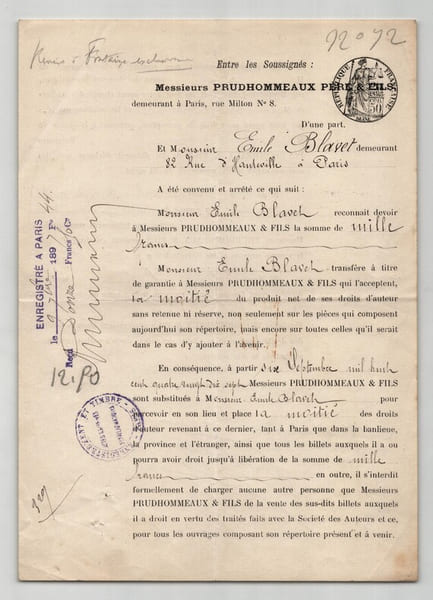 12072
Entre les Soussignés :
Messieurs PRUDHOMMEAUX PÈRE & FILS
demeurant à Paris, rue Milton N° 8.
RÉPUBLIQUE FRANÇAISE
50
D'une part.
Et Monsieur Emile Blavet demeurant
82 Rue d'Hauteville à Paris
A été convenu et arrêté ce qui suit :
Monsieur Emile Blavet reconnait devoir
à Messieurs PRUDHOMMEAUX & FILS la somme de mille
francs
Monsieur Emile Blavet transfère à titre
de garantie à Messieurs PRUDHOMMEAUX & FILS qui l'acceptent,
la moitié du produit net de ses droits d'auteur
sans retenue ni réserve, non seulement sur les pièces qui composent
aujourd'hui son répertoire, mais encore sur toutes celles qu'il serait
dans le cas d'y ajouter à l'avenir.
En conséquence, à partir six Septembre mil huit
cent quatre vingt dix sept Messieurs PRUDHOMMEAUX & FILS
sont substitués à Monsieur Emile Blavet pour
percevoir en son lieu et place la moitié des droits
d'auteur revenant à ce dernier, tant à Paris que dans la banlieue,
la province et l'étranger, ainsi que tous les billets auxquels il a ou
pourra avoir droit jusqu'à libération de la somme de mille
francs en outre, il s'interdit
formellement de charger aucune autre personne que Messieurs
PRUDHOMMEAUX & FILS de la vente des sus-dits billets auxquels
il a droit en vertu des traités faits avec la Societé des Auteurs et ce,
pour tous les ouvrages composant son répertoire présent et à venir.
ENREGISTRÉ A PARIS
le 9 7bre 1897 F° 44
Reçu Douze Francs 50 Cs
12.50
ENREGISTREMENT ET TIMBRE
329